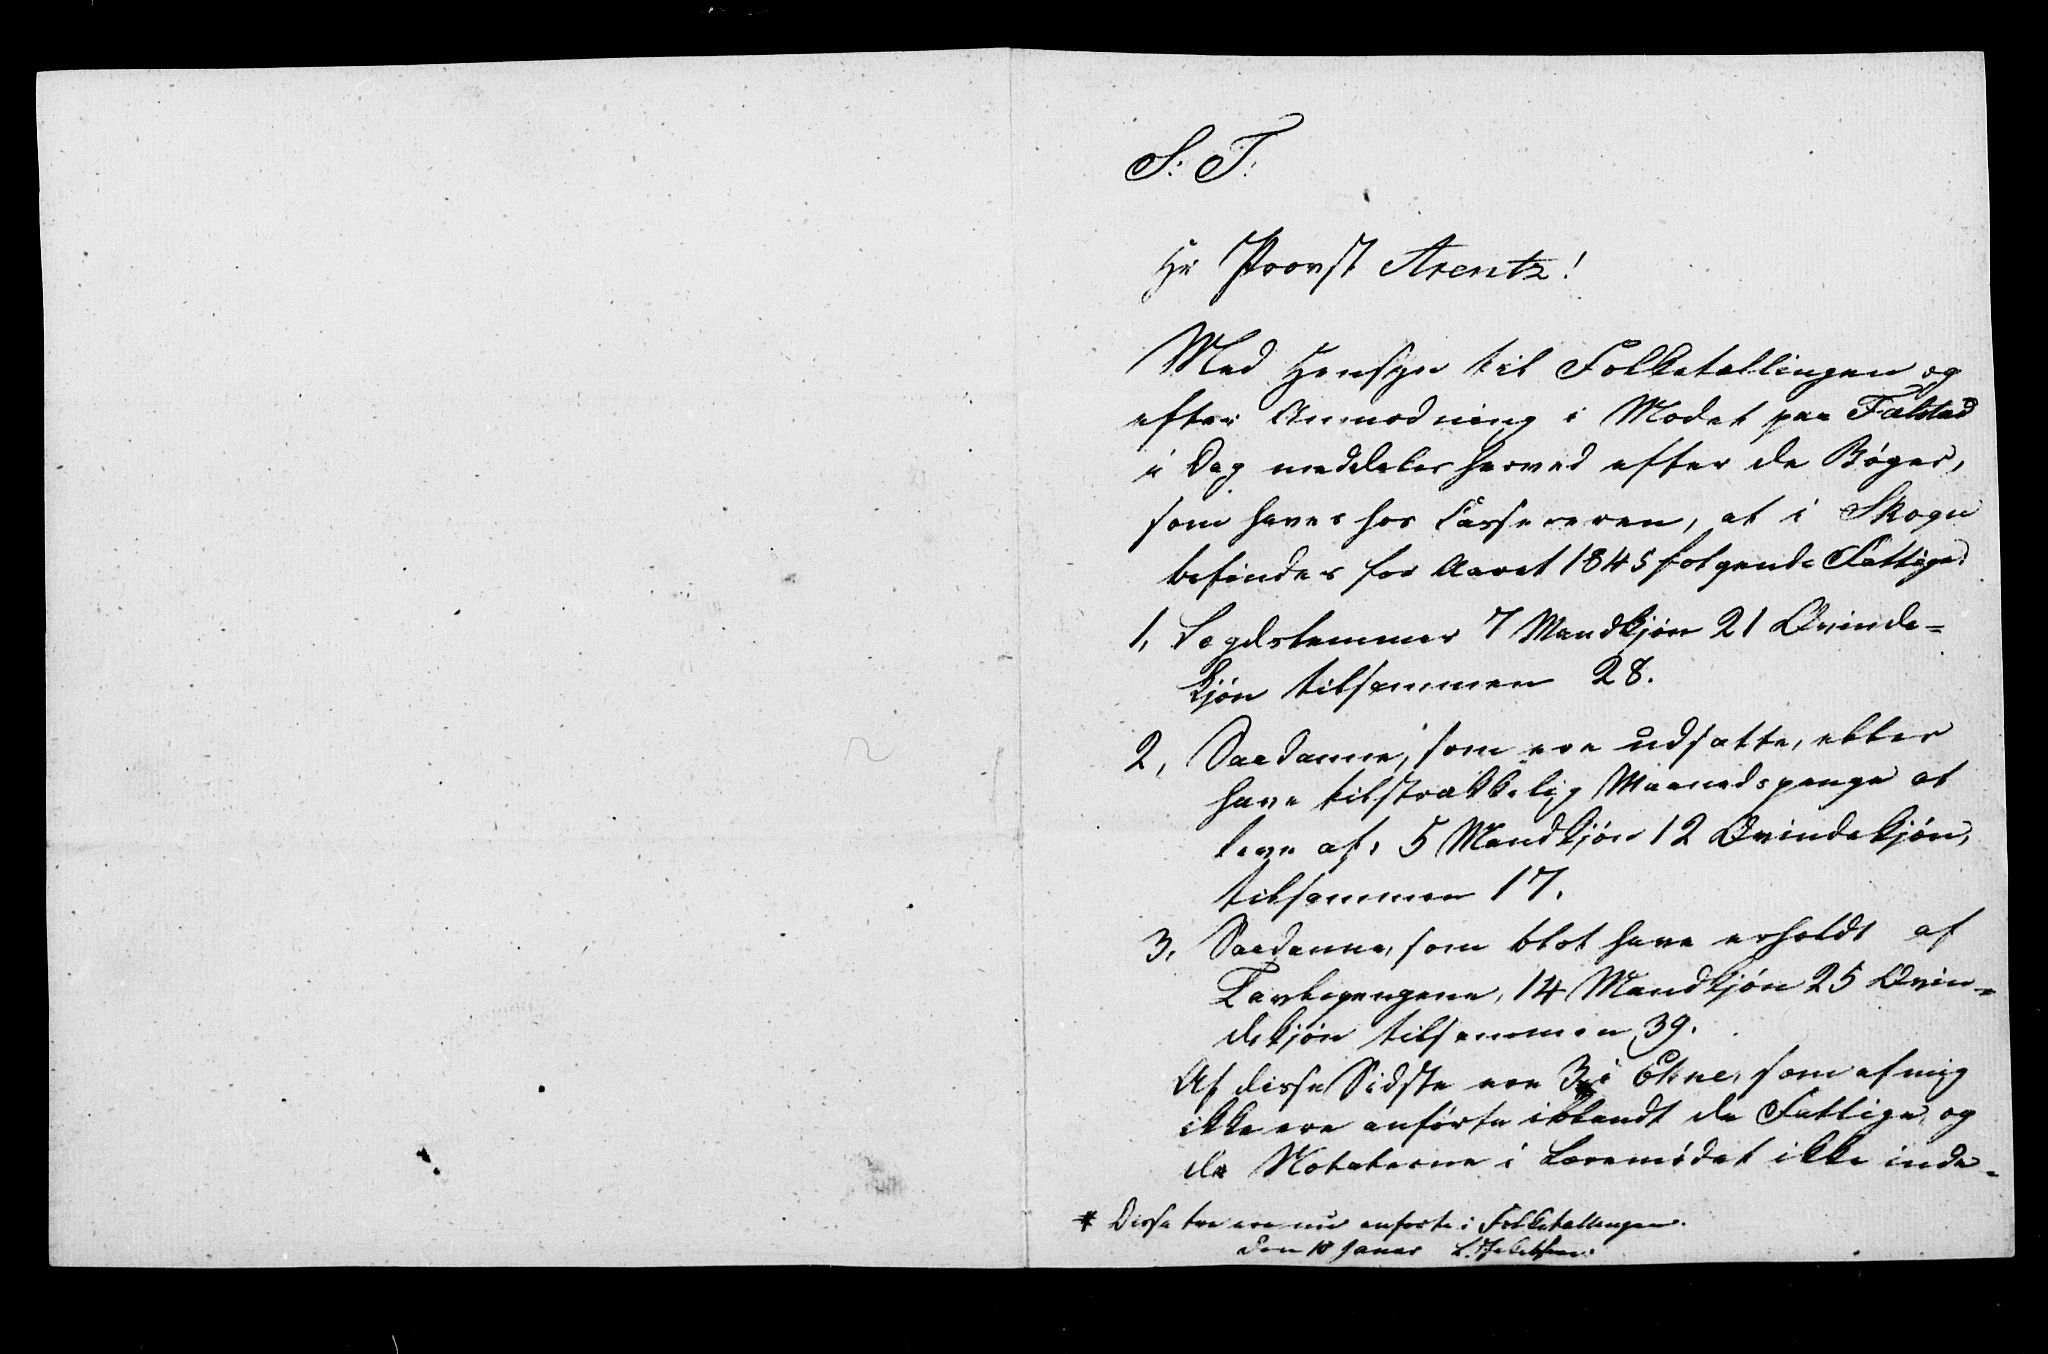 S: T:
Hr Provst Arentz!
Med Hensyn til Folketællingen og
efter Anmodning i Mødet paa Falstad
i Dag meddeles herved efter de Bøger,
som haves hos Cassereren, at i Skogn
befindes for Aaret 1845 følgende Fattige:
1, Lægdslemmer 7 Mandkjøn 21 Qvinde=
kjøn tilsammen 28.
2, Saadanne, som ere udsatte, eller
have tilstrækkelig Maanedspenge at
leve af, 5 Mandkjøn 12 Qvindekjøn,
tilsammen 17.
3, Saadanne, som blot have erholdt af
Tavlepengene, 14 Mandkjøn 25 Qvin=
dekjøn tilsammen 39.
Af disse Sidste ere 3 i Ekne, som af mig
ikke ere anførte iblandt de Fattige, og
da Notaterne i Læremødet ikke inde=
* Disse tre ere nu anførte i Folketællingen.
den 18 Januar